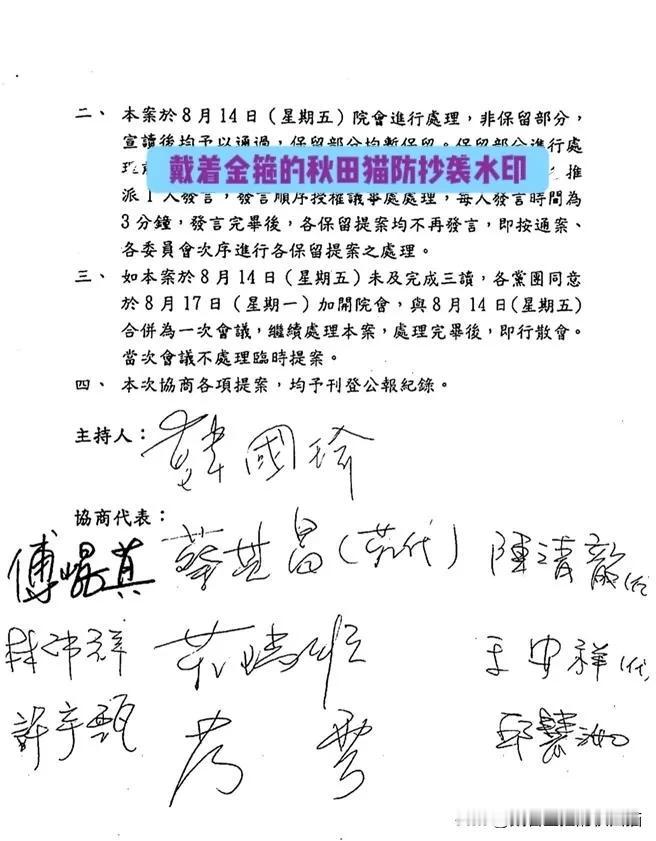 二、本案於8月14日（星期五）院會進行處理，非保留部分，
宣讀後均予以通過，保留部分均暫保留。保留部分進行處
理
戴着金箍的秋田猫防抄袭水印
推
派1人發言，發言順序授權議事處處理，每人發言時間為
3分鐘，發言完畢後，各保留提案均不再發言，即按通案、
各委員會次序進行各保留提案之處理。
三、如本案於8月14日（星期五）未及完成三讀，各黨團同意
於8月17日（星期一）加開院會，與8月14日(星期五)
合併為一次會議，繼續處理本案，處理完畢後，即行散會。
當次會議不處理臨時提案。
四、本次協商各項提案，均予刊登公報紀錄。
主持人：
韓國瑜
協商代表：
傅崐萁 蔡其昌(莊代) 陳清龍(代)
林沛祥 莊瑞雄 王安祥(代)
許宇甄 邱慧洳